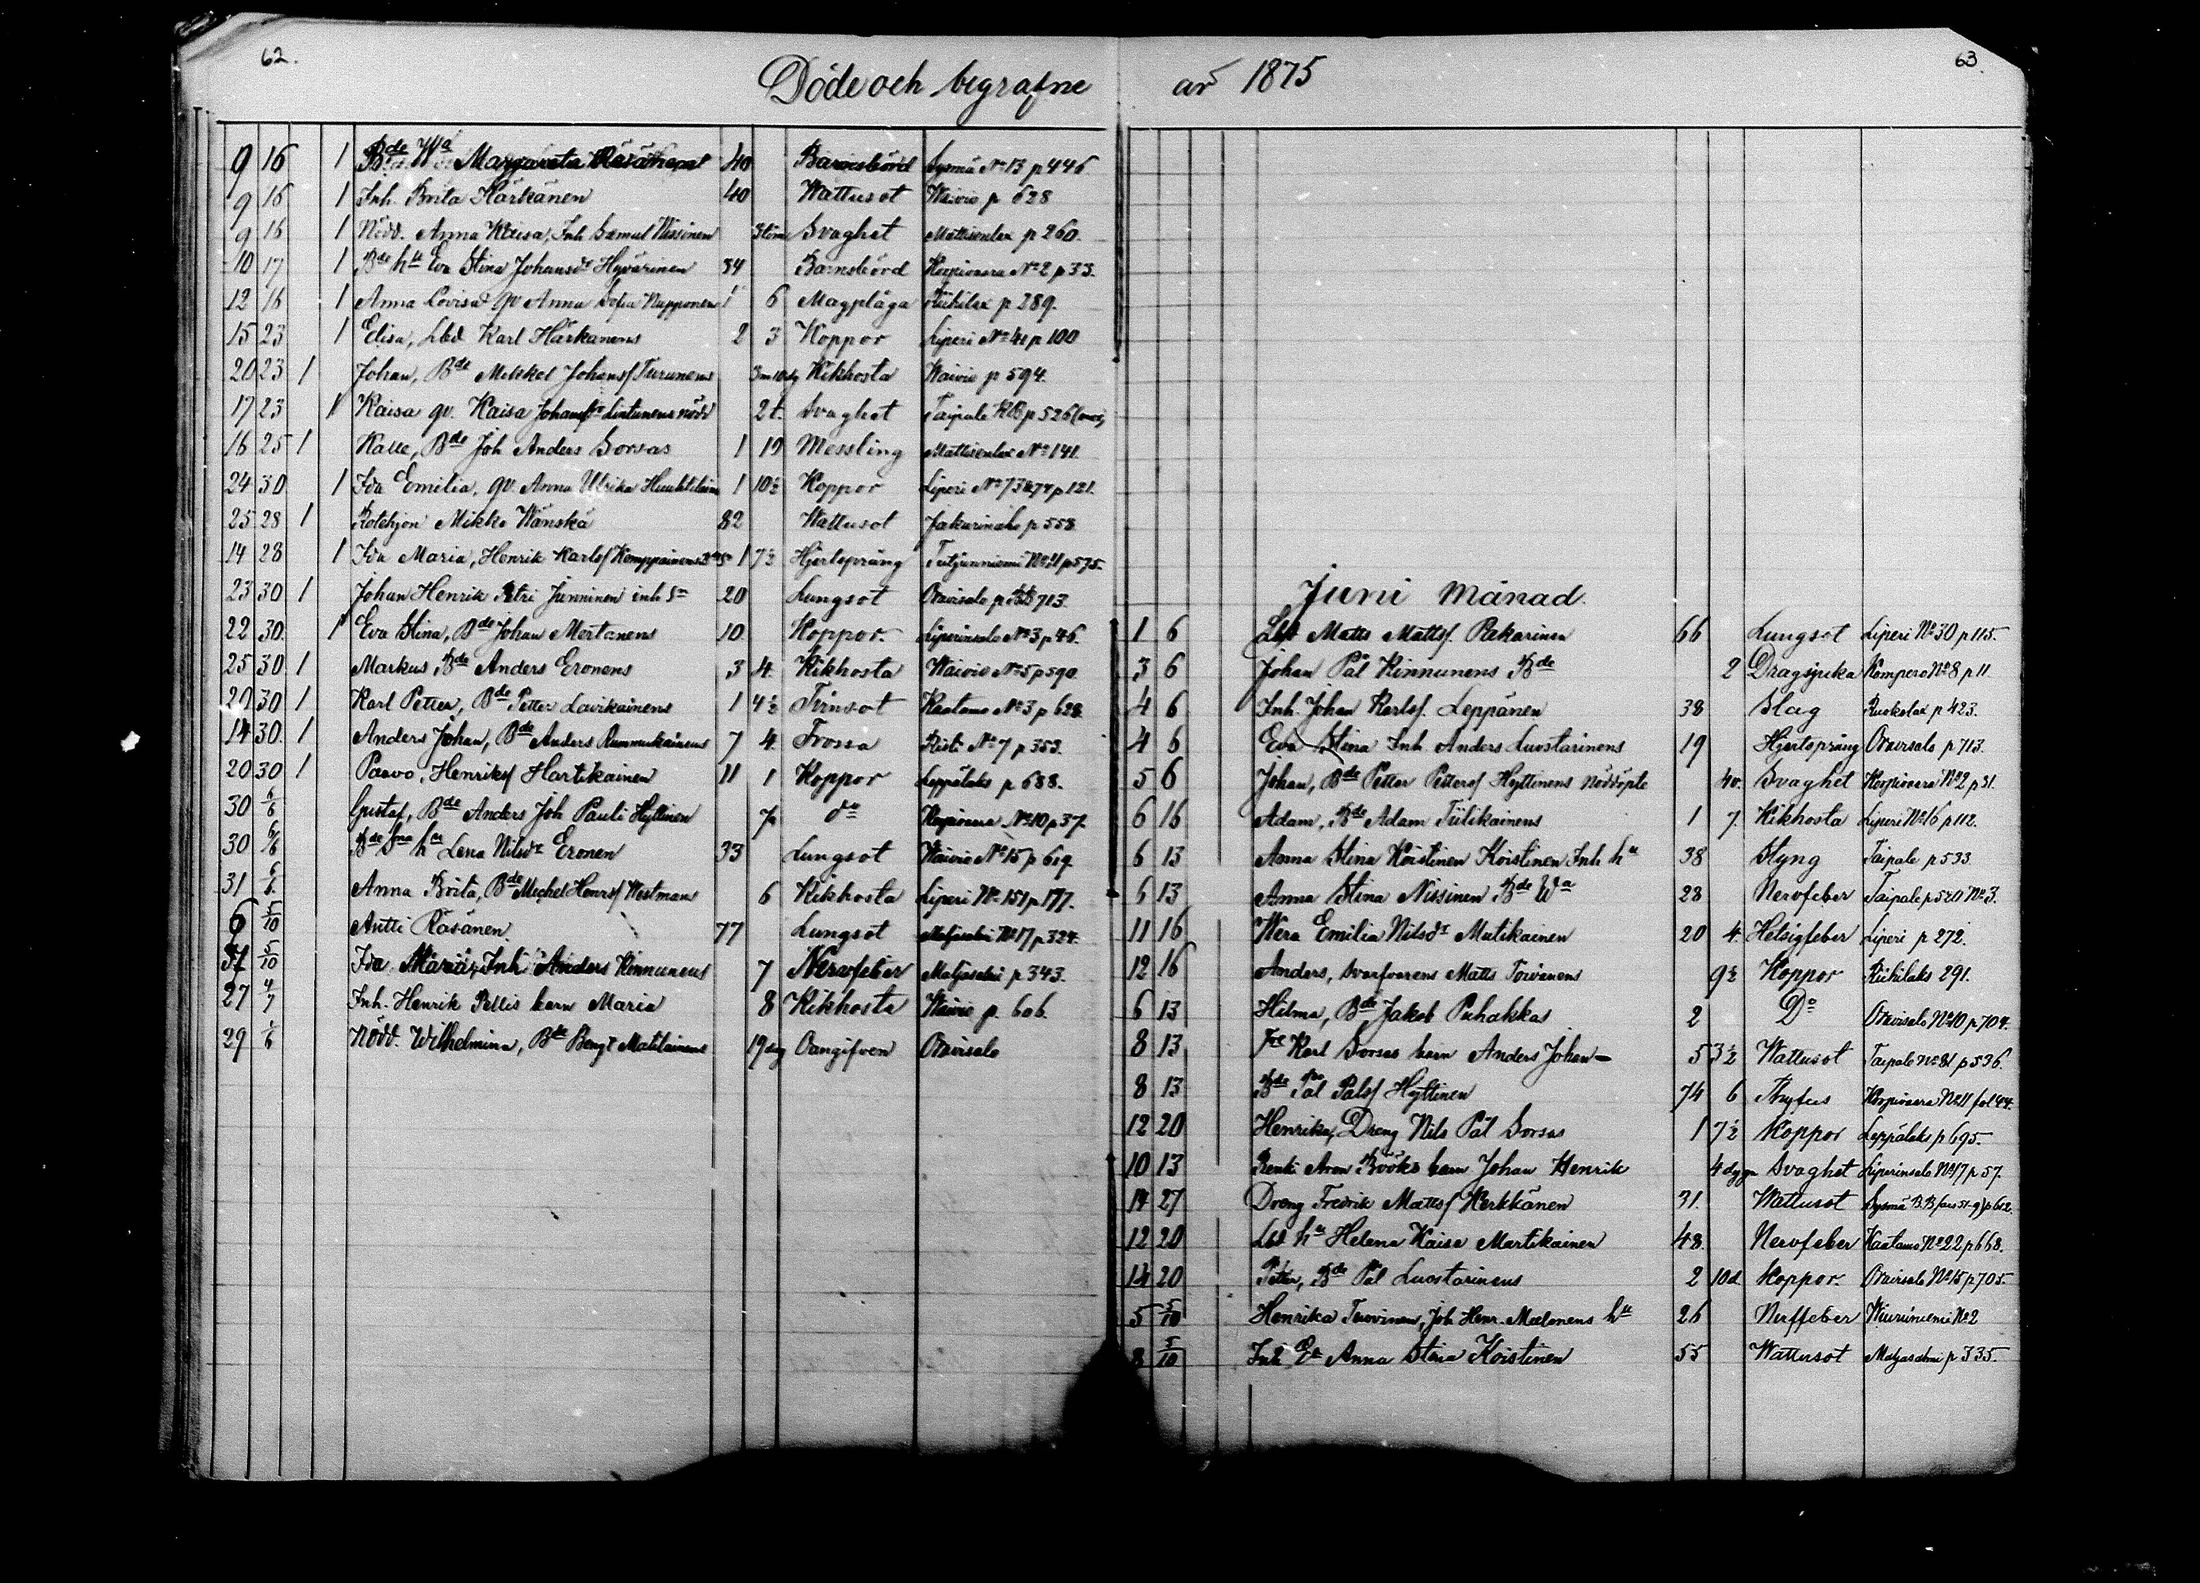 62.
63.
Döde och begrafne år 1875
9 16 1 Bde Wa Margareta Räsänen 40 Barnsbörd Sysmä No 13 p 446
9 16 1 Inh. Brita Härkänen 40 Wattusot Waivio p 628
9 16 1 Nödd. Anna Kaisa, Inh Samuel Nissinen 3 tim Svaghet Mattisenlax p 260.
10 17 1 Bde hu Eva Stina Johansdr Hyvärinen 34 Barnsbörd Korpivaara No 2 p 33.
12 16 1 Anna Lovisa qv Anna Sofia Nupponen 1 6 Magplåga Riihilax p 289.
15 23 1 Elisa, Lbd Karl Härkänens 2 3 Koppor Liperi No 41 p 100
20 23 1 Johan, Bde Mikkel Johansf Turunens 3 m Kikhosta Waivio p 594.
17 23 1 Kaisa qv. Kaisa Lintunens nödd 2 t. Svaghet Taipale p 526
16 25 1 Kalle, Bde Joh Anders Sorsas 1 19 Messling Mattisenlax No 141.
24 30 1 Ida Emilia, qv. Anna Ulrika 1 10½ Koppor Liperi No 73&74 p 121.
25 28 1 Rotehjon Mikko Wänskä 82 Wattusot Jakarinahe p 558
14 28 1 Ida Maria, Henrik Karlsf Komppainens 1 7½ Hjertsprång Tutjunniemi No 11 p 575.
23 30 1 Johan Henrik Petri Junninen inh Sn 20 Lungsot Oravisalo p 713.
22 30. 1 Eva Stina, Bde Johan Mertanens 10 Koppor. Liperinsalo No 3 p 46.
25 30 1 Markus Bde Anders Eronens 3 4. Kikhosta Waivio No 5 p 590.
29 30 1 Karl Petter, Bde Petter Lavikainens 1 4½ Tvinsot Kaatamo No 3 p 628.
14 30. 1 Anders Johan, Bde Anders Rummukainens 7 4. Frossa Risti No 7 p 353.
20 30 1 Paavo, Henriksf Hartikainen 11 1 Koppor Leppälaks p 688.
30 6/6 Gustaf, Bde Anders Joh Pauli Hyttinen 7 do Korpivaara No 10 p 37.
30 6/6 Bde hu Lena Nilsdr Eronen 33 Lungsot Waivio No 15 p 619.
31 6/6. Anna Brita, Bde Michel Henrsf Westmans 6 Kikhosta Liperi No 151 p 177.
6 5/10 Antti Räsänen 77 Lungsot No 17 p 324.
31 5/10 Ida Maria, Inh Anders Kinnunens 7 Nervfeber Maljasalmi p 343.
27 4/7 Inh. Henrik Pellis barn Maria 8 Kikhosta Waivio p. 606.
29 1/6 Nödd. Wilhelmina, Bde Bengt Matilainens 19 dag Oangifven Oravisalo
Juni månad.
1 6 Lbd Matts Mattsf. Pakarinen 66 Lungsot Liperi No 30 p 115.
3 6 Johan Pål Kinnunens Bde 2 Dragsjuka Kompero No 8 p 11.
4 6 Inh. Johan Karlsf. Leppänen 38 Slag Ruokolax p 423.
4 6 Eva Stina Inh Anders Luostarinens 19 Hjertsprång Oravisalo p 713.
5 6 Johan, Bde Petter Pettersf Hyttinens nöddöpte 4v. Svaghet Korpivaara No 2 p 31.
6 16 Adam, Bde Adam Tiilikainens 1 7. Kikhosta Liperi No 16 p 112.
6 13 Anna Stina Koistinen Koistinen Inh hu 38 Styng Taipale p 533.
6 13 Anna Stina Nissinen Bde Wa 28 Nervfeber Taipale p 520 No 3.
11 16 Wera Emilia Nilsdr Matikainen 20 4. Hetsigfeber Liperi p 272.
12 16 Anders, Svarfvarens Matts Toivanens 9½ Koppor Riihilaks 291.
6 13 Hilma, Bde Jakob Puhakkas 2 Do Oravisalo No 10 p 704.
8 13 Karl Sorsas barn Anders Johan 5 3½ Wattusot Taipale No 81 p 536.
8 13 Bde Pål Pålsf Hyttinen 74 6 Thyfus Korpivaara No 11 fol 44.
12 20 Henrika, Dreng Nils Pål Sorsas 1 7½ Koppor Leppälaks p 695.
10 13 Renki Aron Bööks barn Johan Henrik 4 dygn Svaghet Liperinsalo No 17 p 57.
14 27 Dreng Fredrik Mattsf Kerkkänen 31. Wattusot Sysmä p 612.
12 20 Lbd hu Helena Kaisa Martikainen 48. Nervfeber Kaatamo No 22 p 668.
14 20 Petter, Bde Pål Luostarinens 2 10 d. Koppor. Oravisalo No 15 p 705.
5 5/10 Henrika Turvinen, Joh Henr. hu 26 Nerffeber Wiiriniemi No 2
8 5/10 Inh Ea Anna Stina Koistinen 55 Wattusot Maljasalmi p 335.